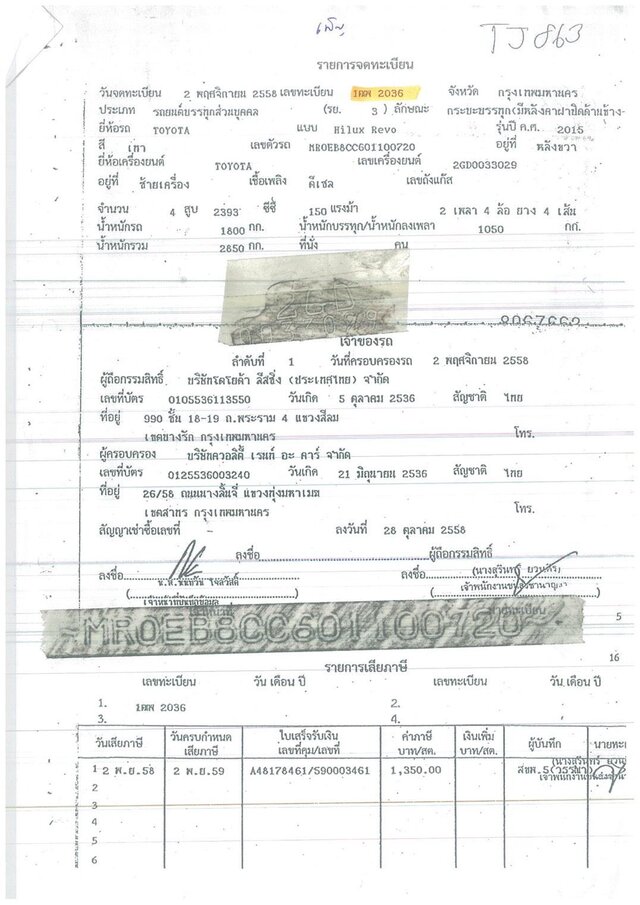 TJ863
รายการจดทะเบียน
วันจดทะเบียน 2 พฤศจิกายน 2558 เลขทะเบียน 1ฒฒ 2036 จังหวัด กรุงเทพมหานคร
ประเภท รถยนต์บรรทุกส่วนบุคคล (รย. 3 ) ลักษณะ กระบะบรรทุก(มีหลังคาฝาปิดด้านข้าง-
ยี่ห้อรถ TOYOTA แบบ Hilux Revo รุ่นปี ค.ศ. 2015
สี เทา เลขตัวรถ MR0EB8CC601100720 อยู่ที่ หลังขวา
ยี่ห้อเครื่องยนต์ TOYOTA เลขเครื่องยนต์ 2GD0033029
อยู่ที่ ซ้ายเครื่อง เชื้อเพลิง ดีเซล เลขถังแก๊ส
จำนวน 4 สูบ 2393 ซีซี 150 แรงม้า 2 เพลา 4 ล้อ ยาง 4 เส้น
น้ำหนักรถ 1800 กก. น้ำหนักบรรทุก/น้ำหนักลงเพลา 1050 กก.
น้ำหนักรวม 2850 กก. ที่นั่ง คน
8067662
เจ้าของรถ
ลำดับที่ 1 วันที่ครอบครองรถ 2 พฤศจิกายน 2558
ผู้ถือกรรมสิทธิ์ บริษัทโตโยต้า ลีสซิ่ง (ประเทศไทย) จำกัด
เลขที่บัตร 0105536113550 วันเกิด 5 ตุลาคม 2536 สัญชาติ ไทย
ที่อยู่ 990 ชั้น 18-19 ถ.พระราม 4 แขวงสีลม
เขตบางรัก กรุงเทพมหานคร โทร.
ผู้ครอบครอง บริษัทควอลิตี้ เรนท์ อะ คาร์ จำกัด
เลขที่บัตร 0125536003240 วันเกิด 21 มิถุนายน 2536 สัญชาติ ไทย
ที่อยู่ 26/58 ถนนนางลิ้นจี่ แขวงทุ่งมหาเมฆ
เขตสาทร กรุงเทพมหานคร โทร.
สัญญาเช่าซื้อเลขที่ - ลงวันที่ 28 ตุลาคม 2558
ลงชื่อ ผู้ถือกรรมสิทธิ์
ลงชื่อ ลงชื่อ (นางสุรินทร์
MR0EB8CC601100720
5
รายการเสียภาษี 16
เลขทะเบียน วัน เดือน ปี เลขทะเบียน วัน เดือน ปี
1. 1ฒฒ 2036 2.
3. 4.
วันเสียภาษี วันครบกำหนดเสียภาษี ใบเสร็จรับเงิน เลขที่คุม/เลขที่ ค่าภาษี บาท/สต. เงินเพิ่ม บาท/สต. ผู้บันทึก นายทะเ
1 2 พ.ย.58 2 พ.ย.59 A48178461/S90003461 1,350.00
2
3
4
5
6